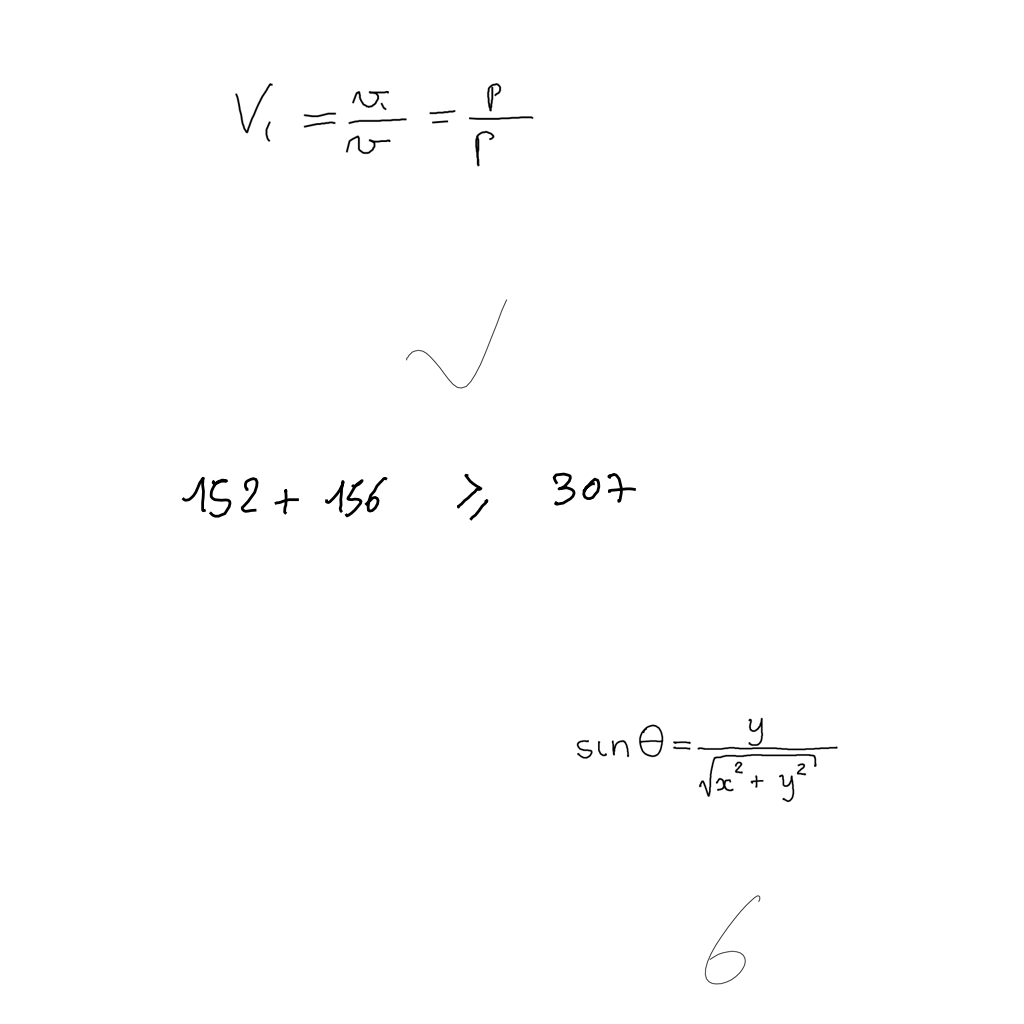 V₁ = v₁/v = p/p
√
152 + 156 ⩾ 307
sin θ = y/√(x² + y²)
6